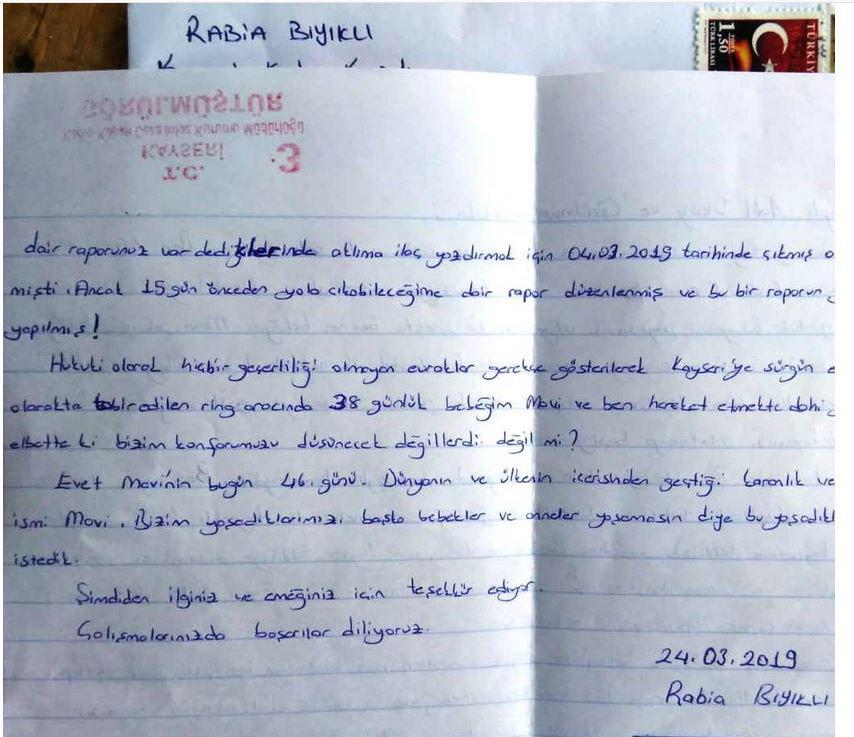 RABIA BIYIKLI
1,50
TÜRK LİRASI
TÜRKİY
GÖRÜLMÜŞTÜR
KAYSERİ
3
T.C.
dair raporunuz var dediklerinde aklıma ilaç yazdırmak için 04.03.2019 tarihinde çıkmış o
mişti. Ancak 15 gün önceden yola çıkabileceğime dair rapor düzenlenmiş ve bu bir raporun
yapılmış!
Hukuki olarak hiçbir geçerliliği olmayan evraklar gerekçe gösterilerek Kayseri'ye sürgün e
olarakta tabir edilen ring aracında 38 günlük bebeğim Mavi ve ben hareket etmekte dahi
elbette ki bizim konforumuzu düşünecek değillerdi değil mi?
Evet Mavi'nin bugün 46. günü. Dünyanın ve ülkenin içerisinden geçtiği karanlık ve
ismi Mavi. Bizim yaşadıklarımızı başka bebekler ve anneler yaşamasın diye bu yaşadıkl
istedik.
Şimdiden ilginiz ve emeğiniz için teşekkür ediyor.
Çalışmalarınızda başarılar diliyoruz.
24.03.2019
Rabia BIYIKLI